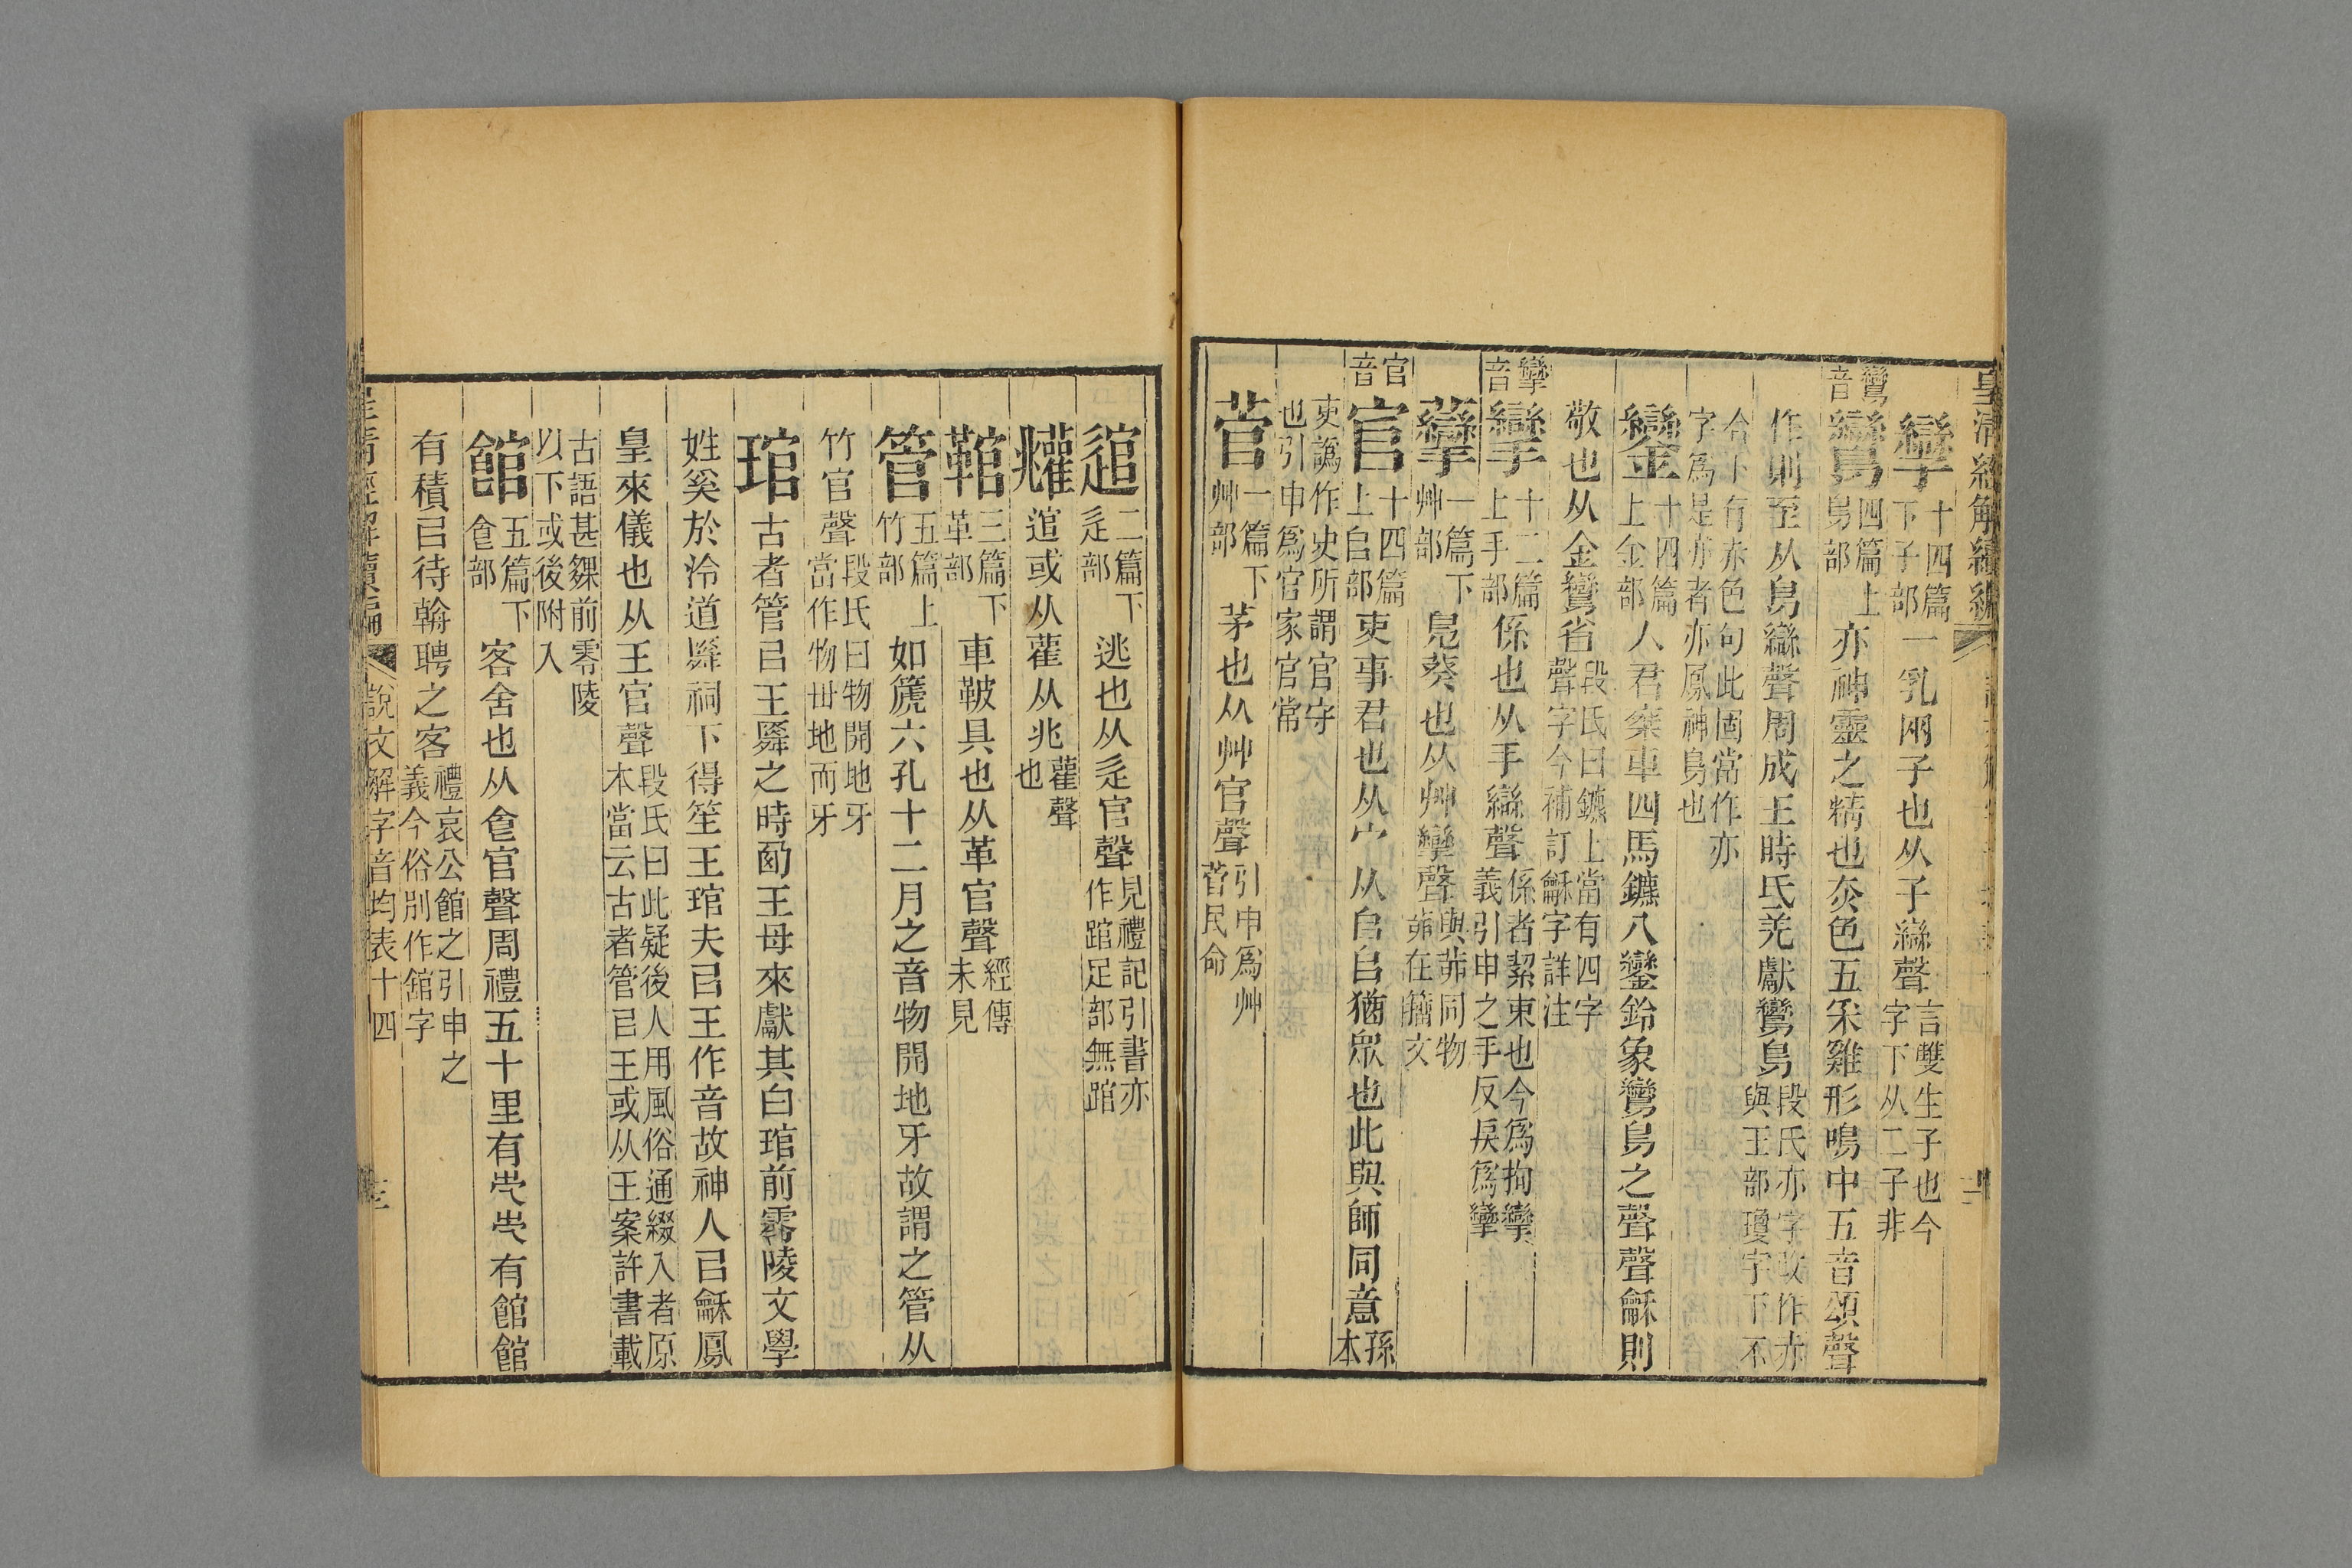 皇清經解續編
孿 十四篇下子部 一乳兩子也从子䜌聲 言雙生子也今字下从二子非
鸞音 鸞 四篇上鳥部 亦神靈之精也赤色五采雞形鳴中五音頌聲
作則至从鳥䜌聲周成王時氐羌獻鸞鳥 段氏亦字改作赤與王部瓊字下不
合下有赤色句此固當作亦字爲是亦者亦鳳神鳥也
鑾 十四篇上金部 人君椉車四馬鑣八鑾鈴象鸞鳥之聲聲龢則
敬也从金鸞省 段氏曰鑣上當有四字聲字今補訂龢字詳注
攣音 攣 十二篇上手部 係也从手䜌聲 係者絜束也今爲拘攣義引申之手反戾爲攣
虊 一篇下艸部 鳧葵也从艸攣聲 與茆同物茆在籒文
官音 官 十四篇上𠂤部 吏事君也从宀从𠂤𠂤猶眾也此與師同意 孫本
吏譌作史所謂官守也引申爲官家官常
菅 一篇下艸部 茅也从艸官聲 引申爲艸菅民命
逭 二篇下辵部 逃也从辵官聲 見禮記引書亦作踣足部無踣
㒑 逭或从雚从兆 雚聲也
䩪 三篇下革部 車鞁具也从革官聲 經傳未見
管 五篇上竹部 如篪六孔十二月之音物開地牙故謂之管从
竹官聲 段氏曰物開地牙當作物毌地而牙
琯 古者管㠯王羀之時西王母來獻其白琯前零陵文學
姓奚於泠道縣祠下得笙王琯夫㠯王作音故神人㠯龢鳳
皇來儀也从王官聲 段氏曰此疑後人用風俗通綴入者原本當云古者管㠯王或从王案許書載
古語甚夥前零陵以下或後附入
館 五篇下𠊊部 客舍也从𠊊官聲周禮五十里有㞢㞢有館館
有積㠯待朝聘之客 禮哀公館之引申之義今俗別作舘字
皇清經解續編 說文解字音均表十四 十三